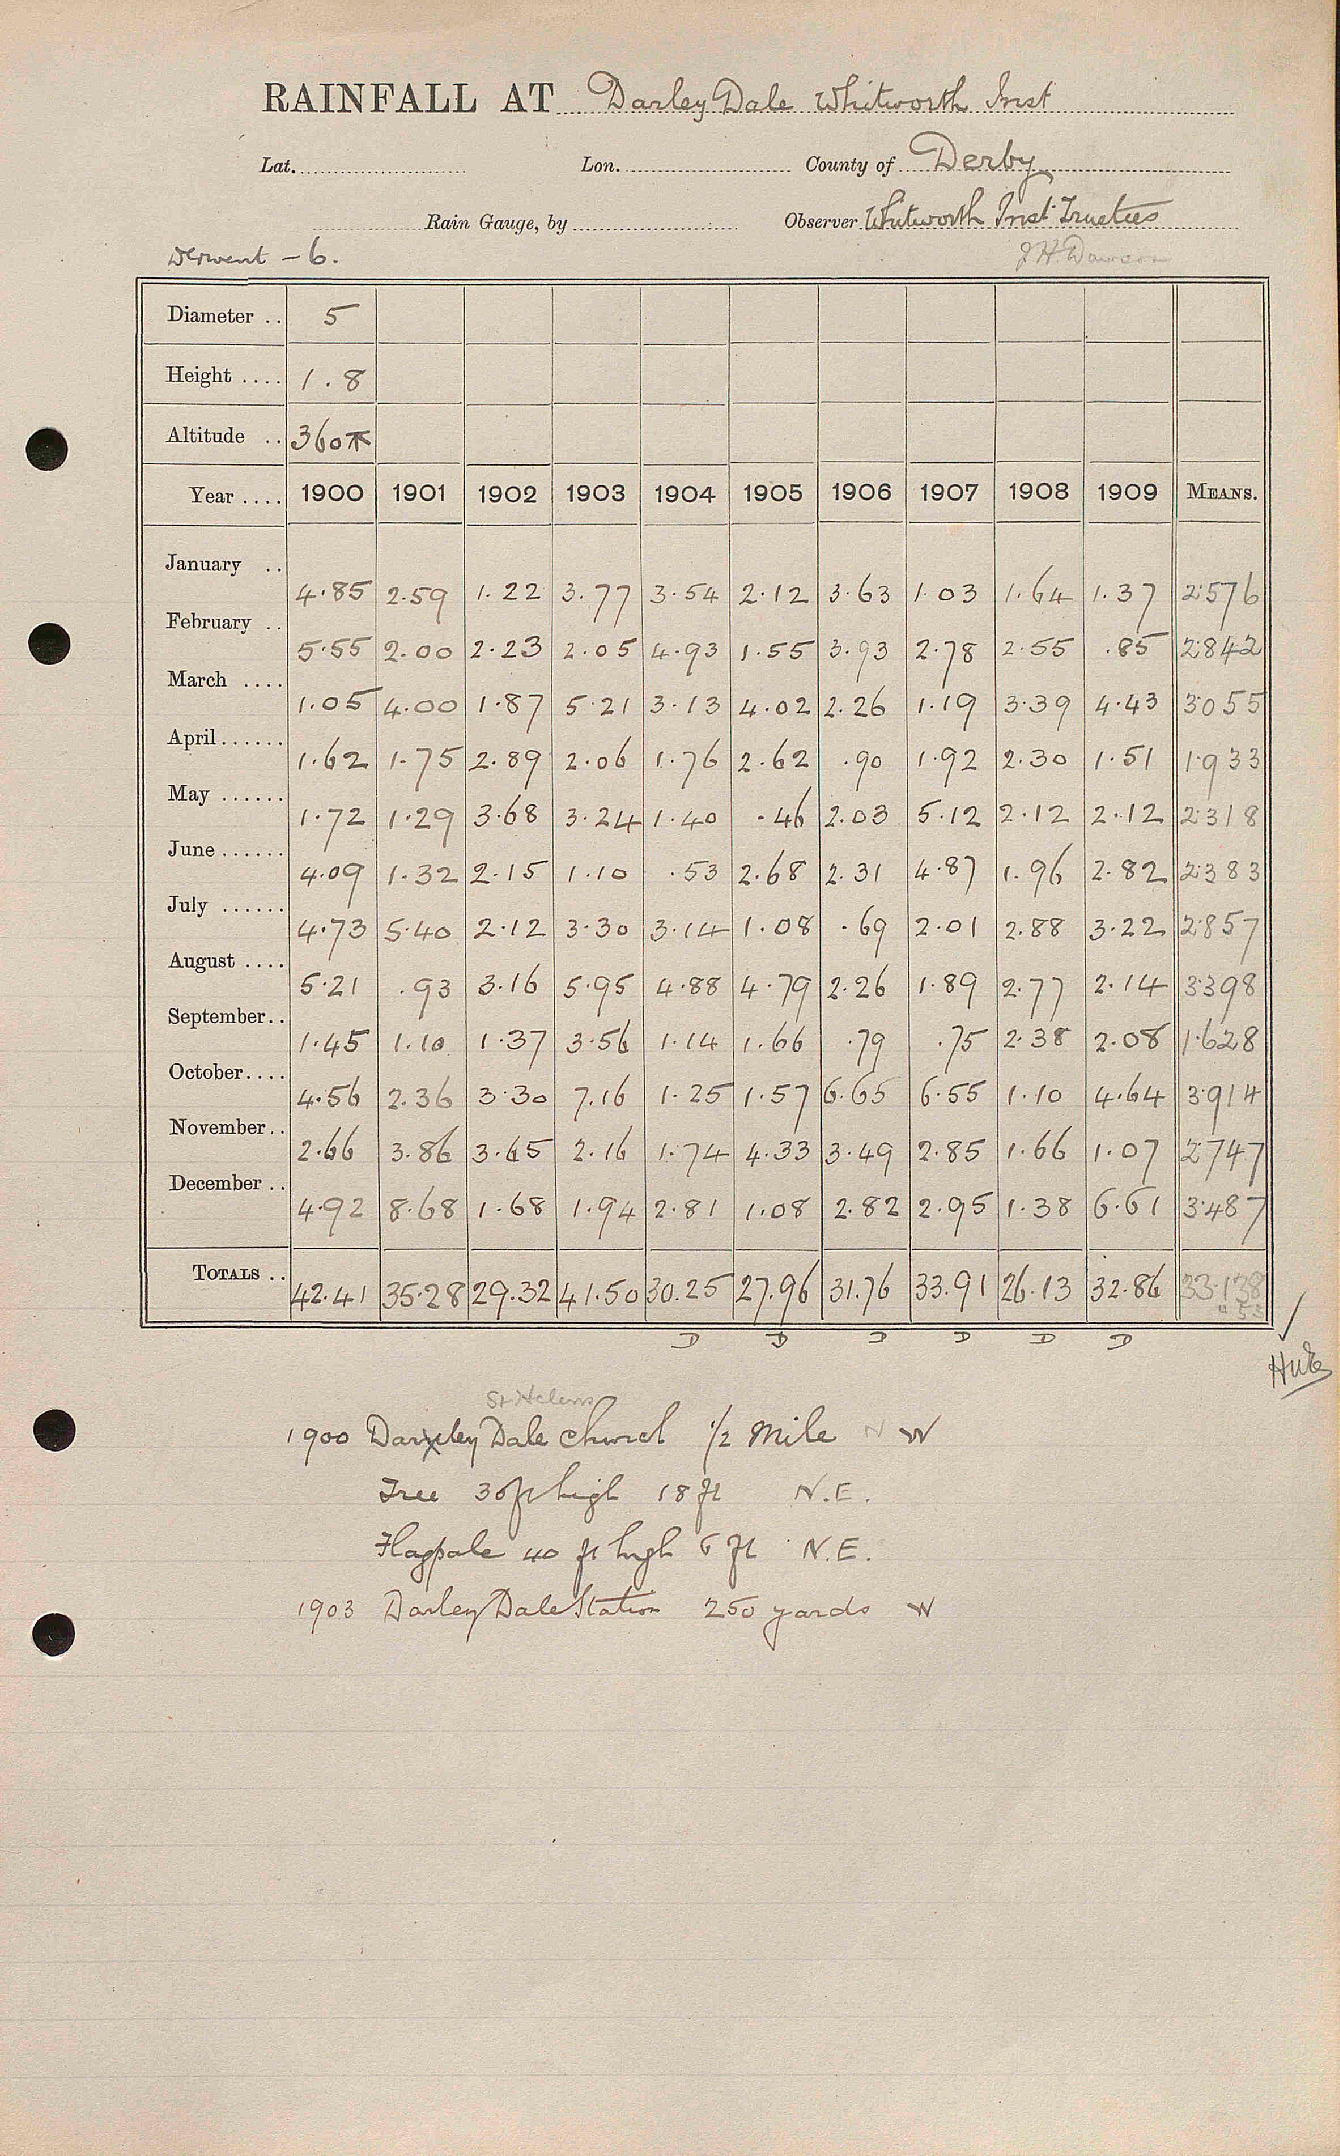 RAINFALL AT Darley Dale Whitworth Inst
Lat. Lon. County of Derby
Rain Gauge, by Observer Whitworth Inst. Trustees
Derwent - 6. J H Dawson
Diameter .. 5
Height .... 1.8
Altitude .. 360
Year .... 1900 1901 1902 1903 1904 1905 1906 1907 1908 1909 MEANS.
January .. 4.85 2.59 1.22 3.77 3.54 2.12 3.63 1.03 1.64 1.37 2.576
February .. 5.55 2.00 2.23 2.05 4.93 1.55 3.93 2.78 2.55 .85 2.842
March .... 1.05 4.00 1.87 5.21 3.13 4.02 2.26 1.19 3.39 4.43 3.055
April...... 1.62 1.75 2.89 2.06 1.76 2.62 .90 1.92 2.30 1.51 1.933
May ...... 1.72 1.29 3.68 3.24 1.40 .46 2.03 5.12 2.12 2.12 2.318
June ...... 4.09 1.32 2.15 1.10 .53 2.68 2.31 4.87 1.96 2.82 2.383
July ...... 4.73 5.40 2.12 3.30 3.14 1.08 .69 2.01 2.88 3.22 2.857
August .... 5.21 .93 3.16 5.95 4.88 4.79 2.26 1.89 2.77 2.14 3.398
September.. 1.45 1.10 1.37 3.56 1.14 1.66 .79 .75 2.38 2.08 1.628
October.... 4.56 2.36 3.30 7.16 1.25 1.57 6.65 6.55 1.10 4.64 3.914
November.. 2.66 3.86 3.65 2.16 1.74 4.33 3.49 2.85 1.66 1.07 2.747
December .. 4.92 8.68 1.68 1.94 2.81 1.08 2.82 2.95 1.38 6.61 3.487
TOTALS .. 42.41 35.28 29.32 41.50 30.25 27.96 31.76 33.91 26.13 32.86 33.138
D D D D D D
St Helens
1900 Darley Dale Church 1/2 Mile N W
Tree 30ft high 18 ft N.E.
Flagpole 40 ft high 6 ft N.E.
1903 Darley Dale Station 250 yards W